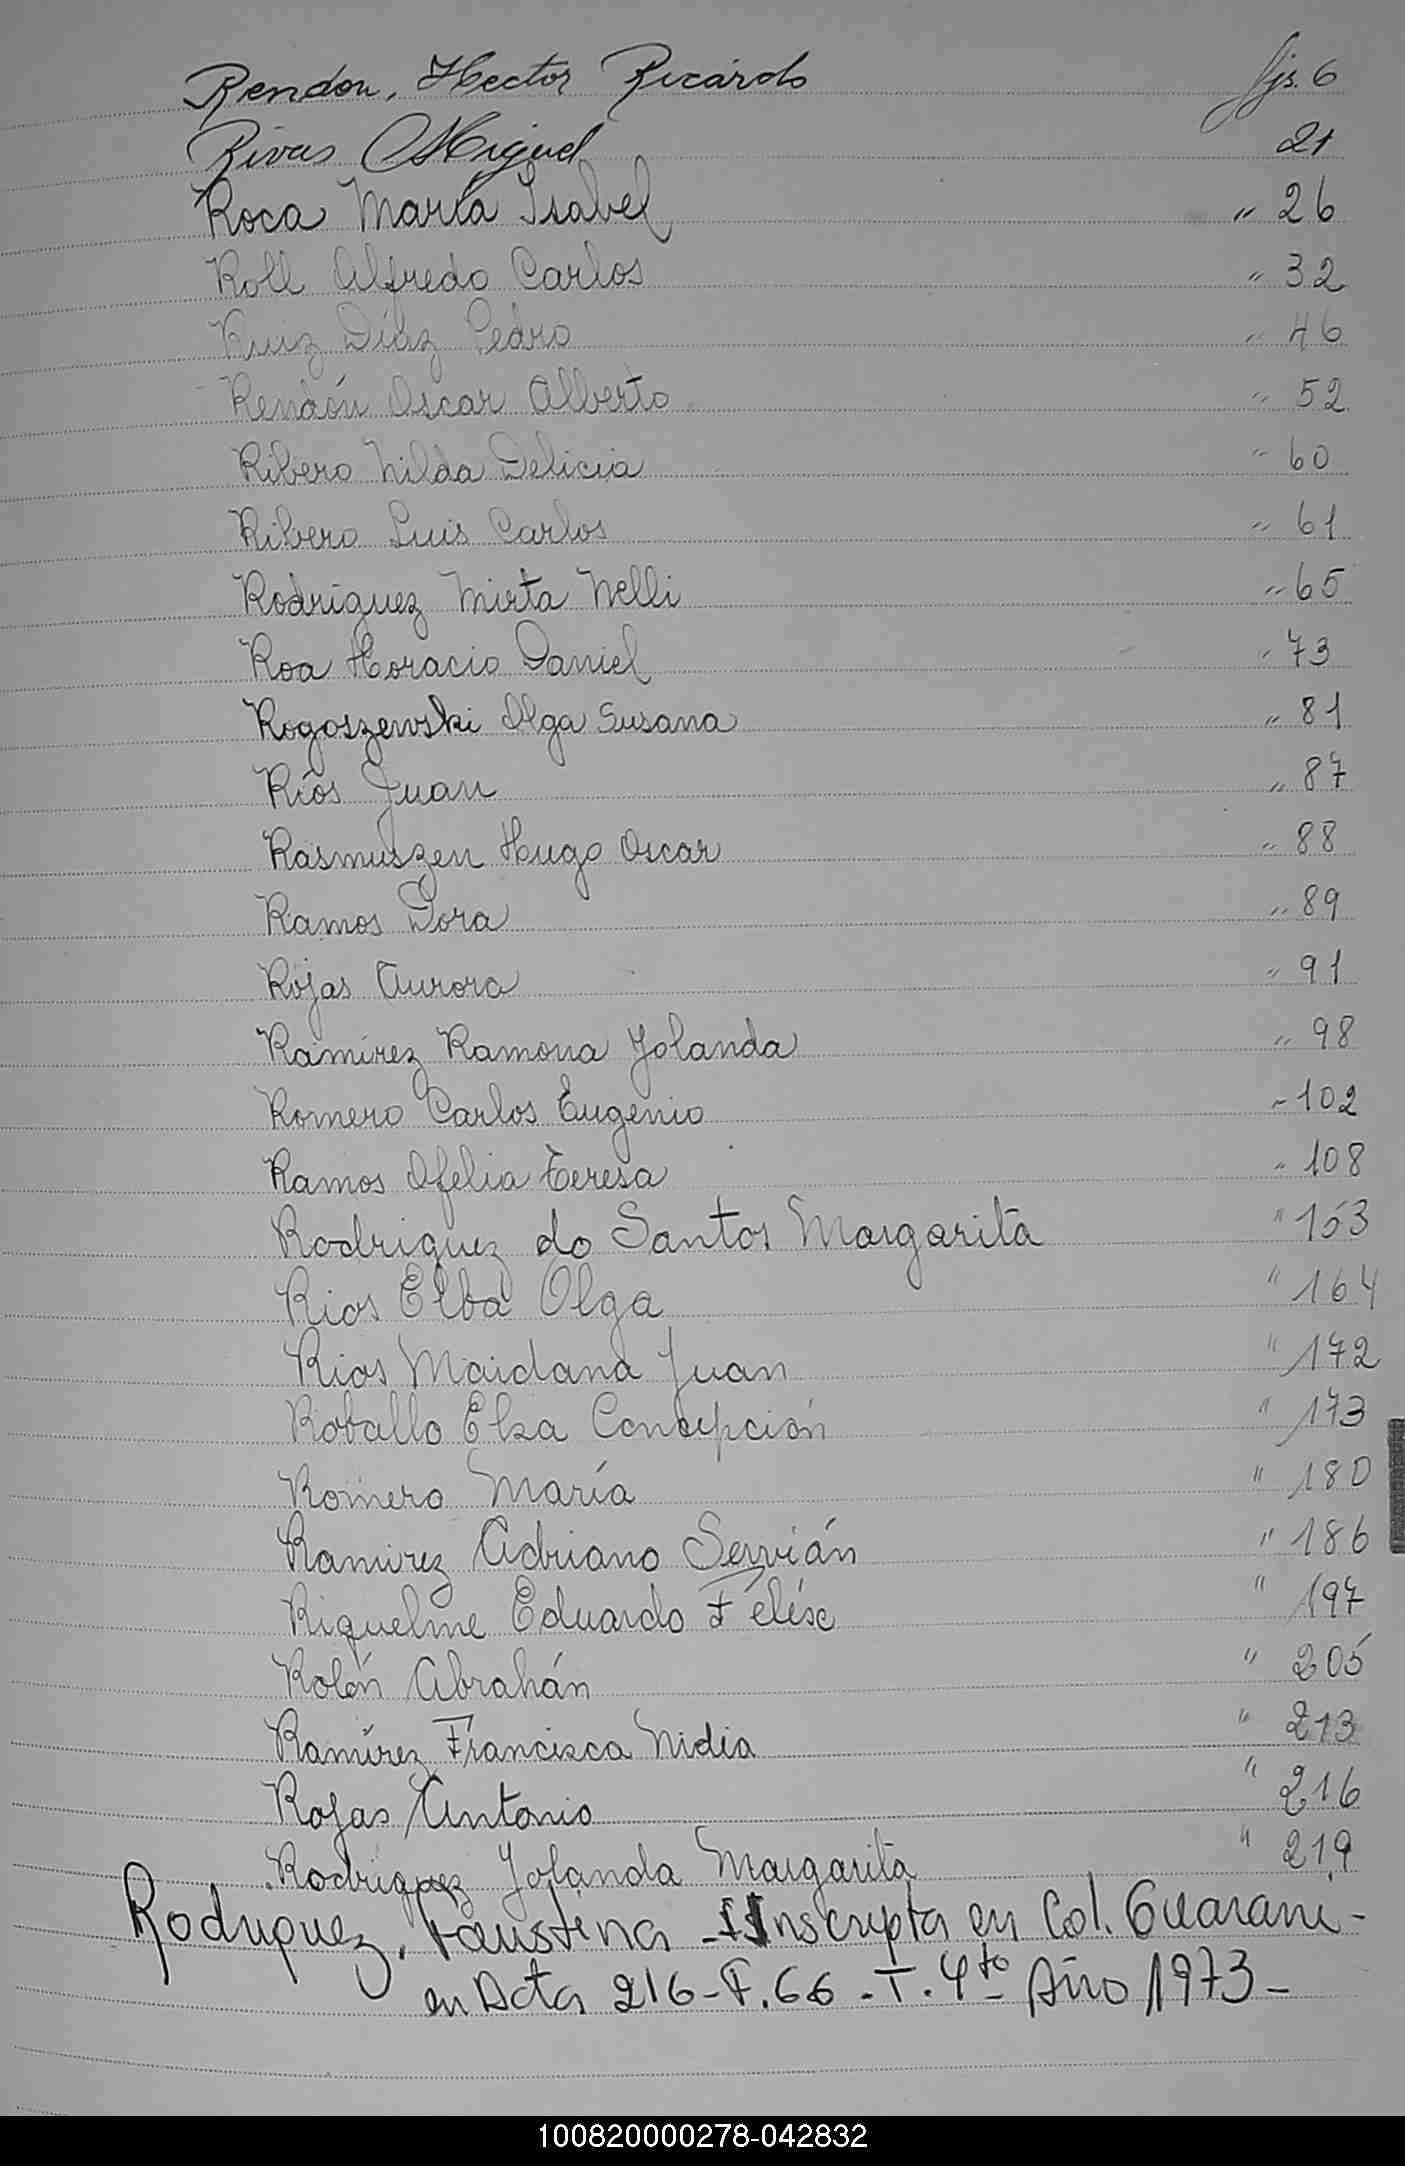 Rendon, Hector Ricardo fjs. 6
Rivas Miguel 21
Roca María Isabel " 26
Roll Alfredo Carlos " 32
Ruiz Díaz Pedro " 46
Rendón Oscar Alberto " 52
Ribero Nilda Delicia " 60
Ribero Luis Carlos " 61
Rodríguez Mirta Nelli " 65
Roa Horacio Daniel " 73
Rogoszewski Olga Susana " 81
Ríos Juan " 87
Rasmuszen Hugo Oscar " 88
Ramos Dora " 89
Rojas Aurora " 91
Ramírez Ramona Yolanda " 98
Romero Carlos Eugenio " 102
Ramos Ofelia Teresa " 108
Rodriguez do Santos Margarita " 153
Rios Elba Olga " 164
Rios Maidana Juan " 172
Roballo Elsa Concepción " 173
Romero María " 180
Ramirez Adriano Servián " 186
Riquelme Eduardo Félix " 197
Rolón Abrahán " 205
Ramírez Francisca Nidia " 213
Rojas Antonio " 216
Rodríguez Yolanda Margarita " 219
Rodriguez, Faustina - Inscripta en Col. Guarani -
en Acta 216 - F. 66 - T. 4to - Año 1973 -
100820000278-042832